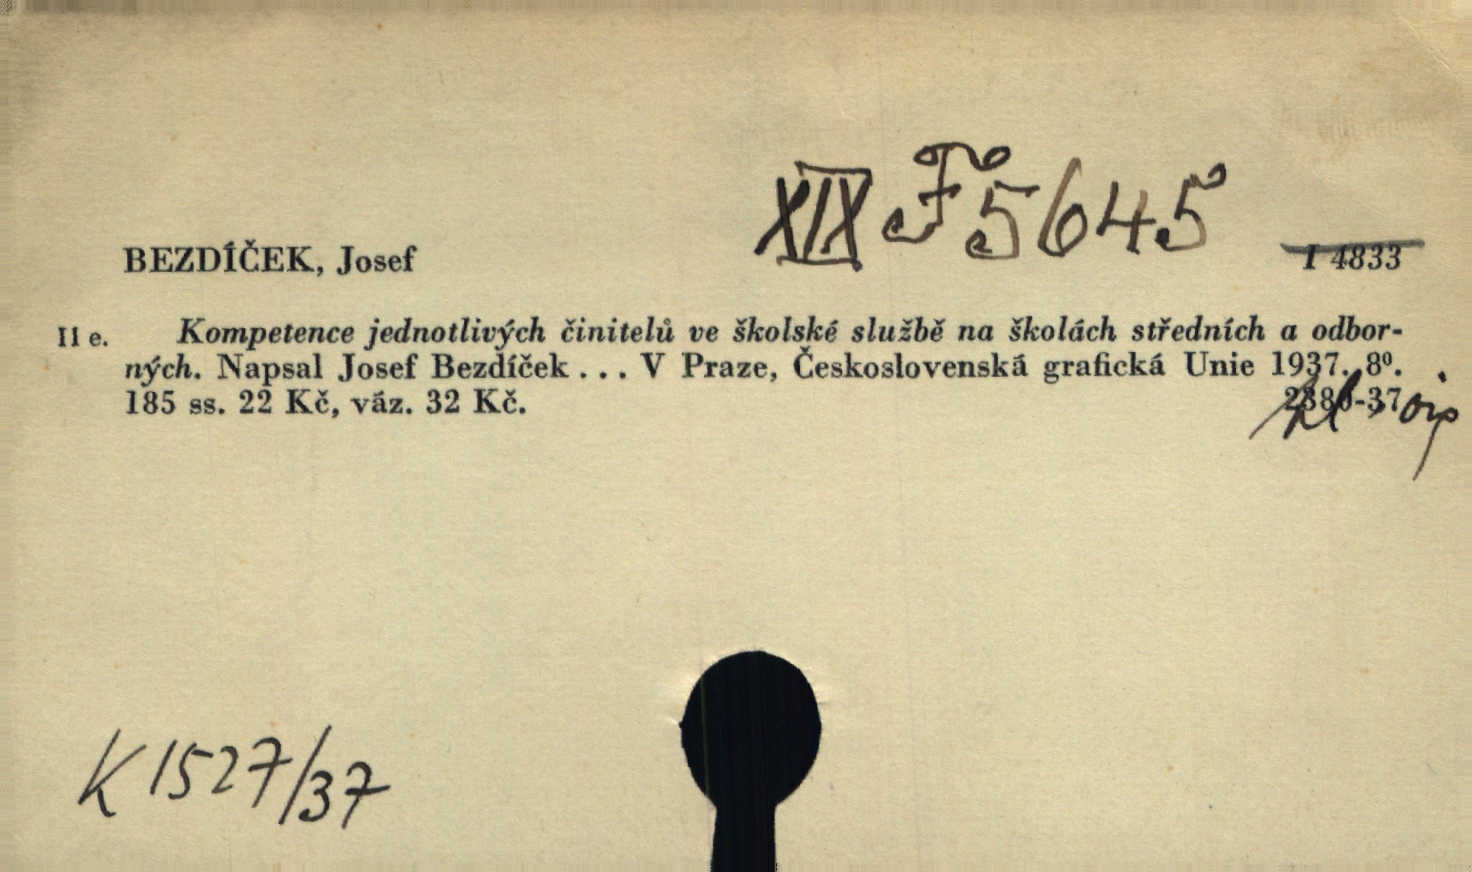 XIX F 5645
BEZDÍČEK, Josef
I 4833
II e. Kompetence jednotlivých činitelů ve školské službě na školách středních a odbor-
ných. Napsal Josef Bezdíček . . . V Praze, Československá grafická Unie 1937. 8⁰.
185 ss. 22 Kč, váz. 32 Kč. 2386-37
K 1527/37